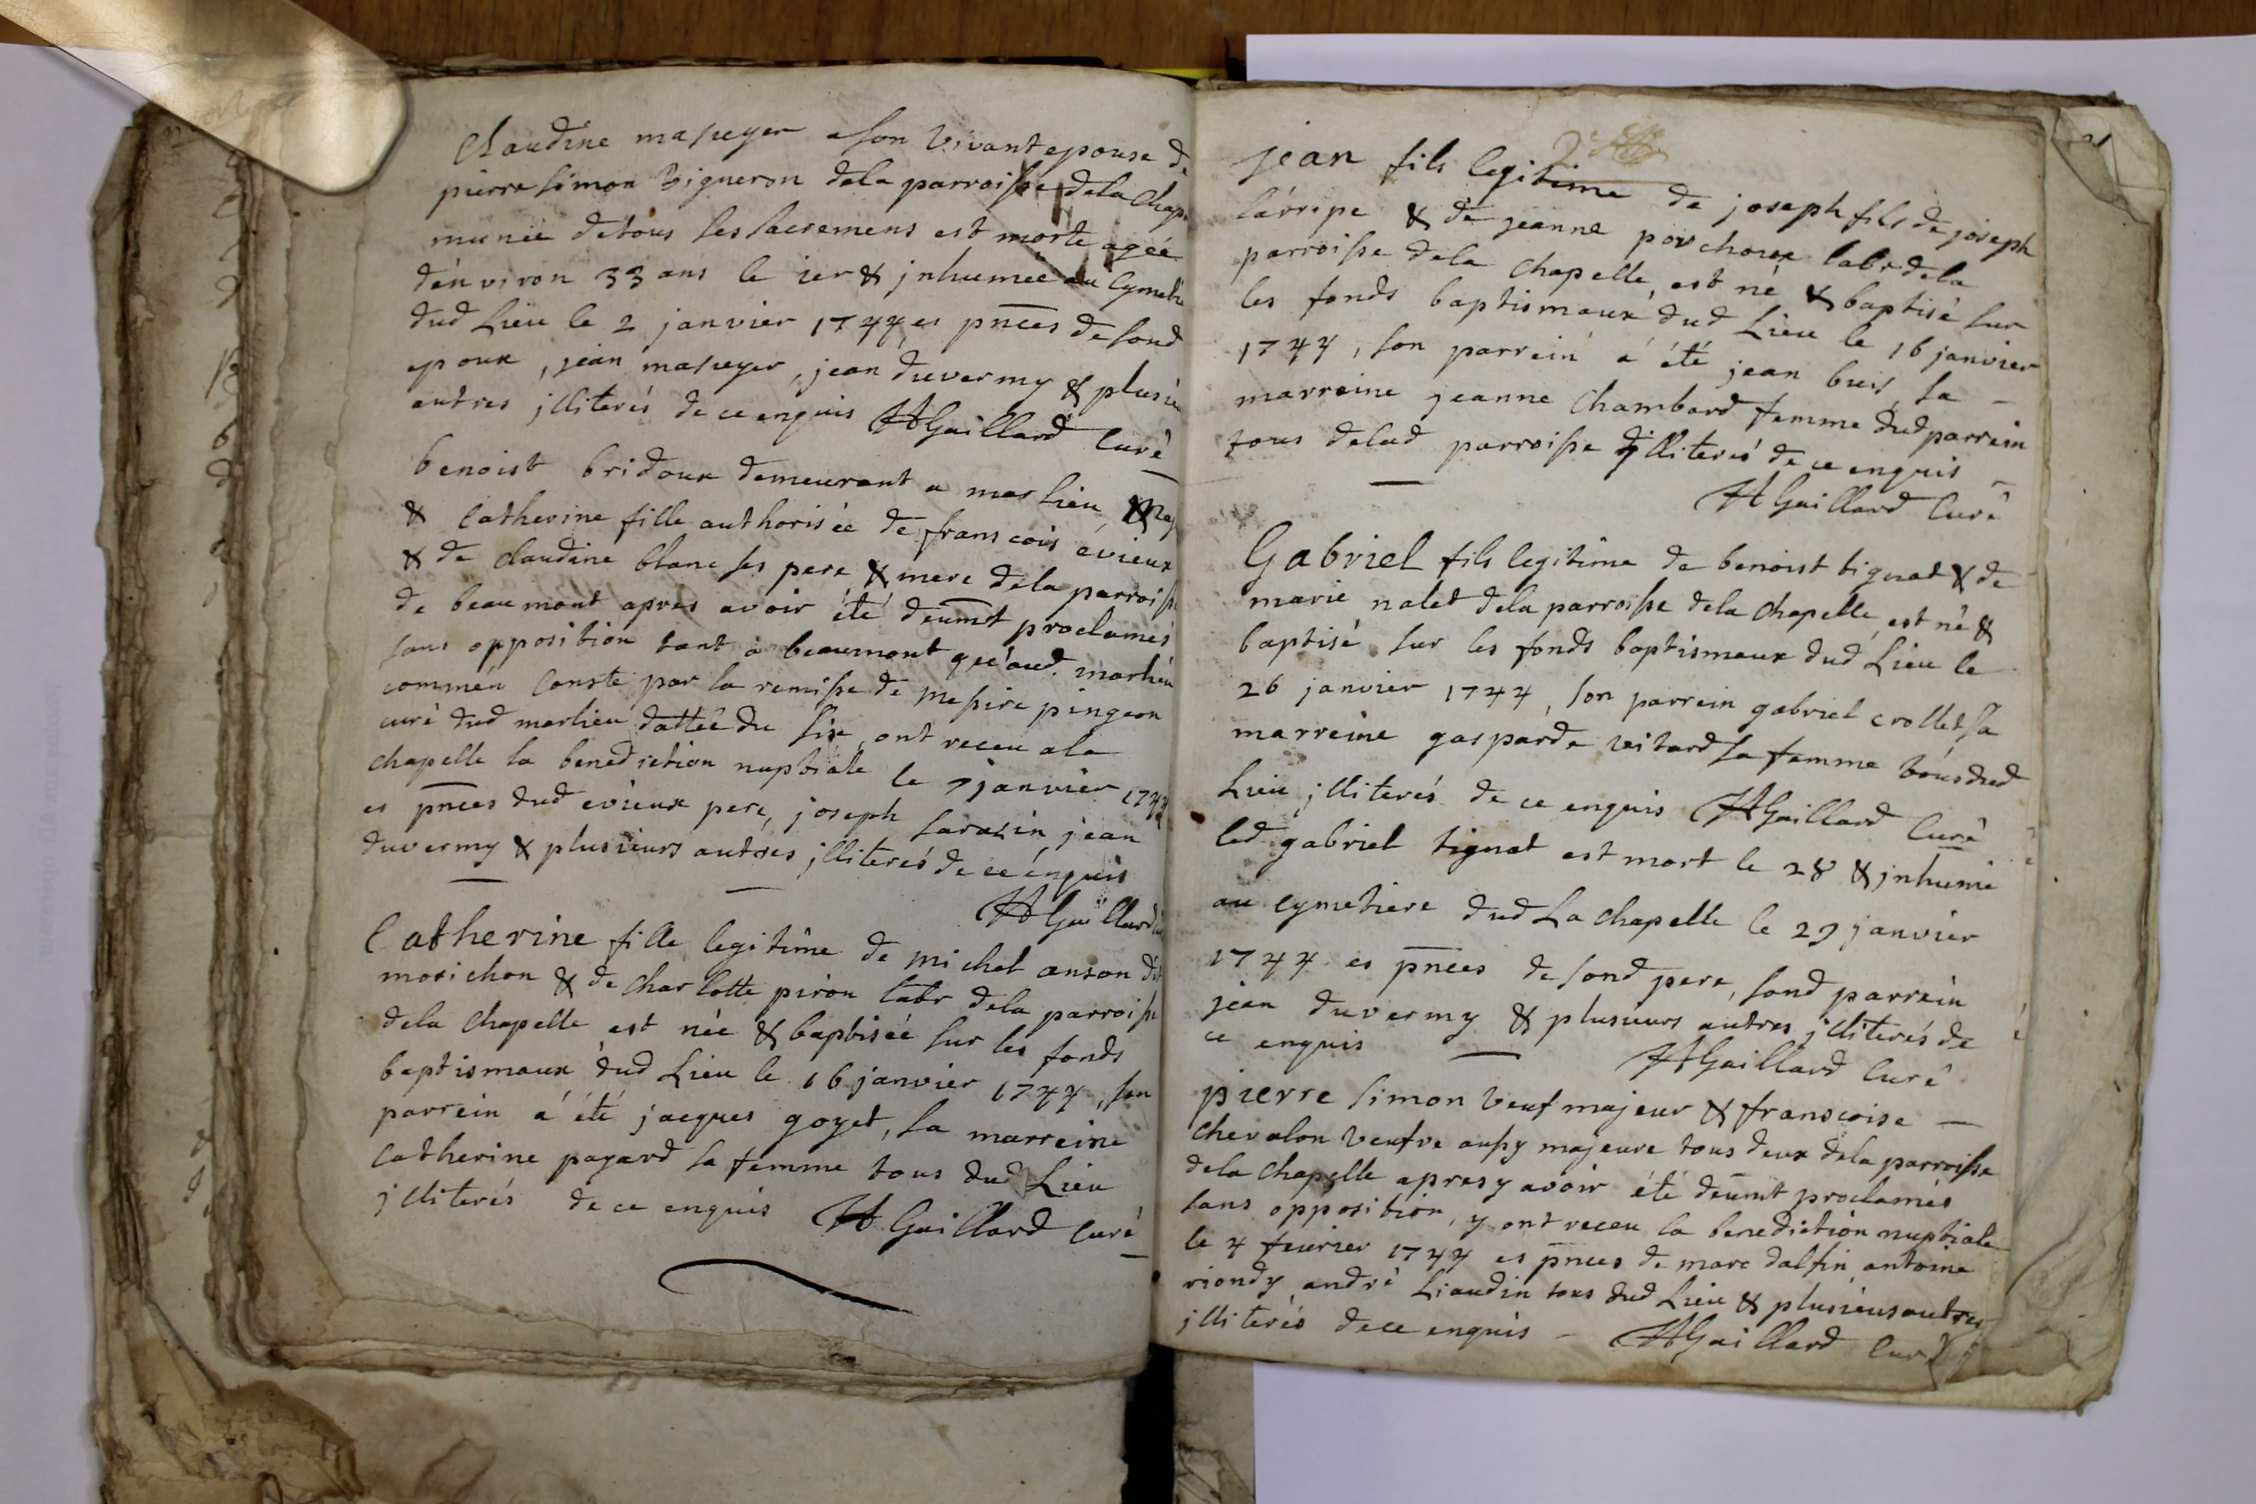 Claudine mapeyer a son vivant epouse de
pierre simon vigneron dela parroisse dela chap
munie de tous les sacremens est morte agée
d'environ 33 ans le ier & jnhumée au cymetie
dud Lieu le 2 janvier 1744, es pnces de sond
epoux, jean mapeyer, jean duvermy & plusie
autres jlliterés de ce enquis HGaillard Curé
benoist bridoux demeurant a marlieu,
& catherine fille authorisée de francois évieux
& de claudine blanc ses pere & mere dela parroisse
de beaumont apres avoir été deumt proclamés
sans opposition tant à beaumont qu'aud. marlieu
comméń conste par la remisse de messire pingeon
curé dud marlieu dattée du six, ont receu ala
chapelle la benediction nuptiale le 7 janvier 1744
es pnces dud evieux pere, joseph sarasin, jean
duvermy & plusieurs autres jlliterés de ce énquis
HGaillard
Catherine fille legitime de michel anson dit
morichon & de charlotte piron labr dela parroisse
dela chapelle est née & baptisée sur les fonds
baptismaux dud Lieu le 16 janvier 1744, son
parrein á été jacques goyet, sa marreine
catherine payard sa femme tous dud Lieu
jlliterés de ce enquis HGaillard curé
jean fils legitime de joseph fils de joseph
larrepe & de jeanne porchoux labr dela
parroisse dela chapelle, est né & baptisé sur
les fonds baptismaux dud Lieu le 16 janvier
1744, son parrein á été jean buis, sa
marreine jeanne chambard femme dud parrein
tous delad parroisse jlliterés de ce enquis
HGaillard Curé
Gabriel fils legitime de benoist tignat & de
marie nalet dela parroisse dela chapelle, est né &
baptisé sur les fonds baptismaux dud Lieu le
26 janvier 1744, son parrein gabriel crollet sa
marreine gasparde vitard sa femme tous dud
Lieu jlliterés de ce enquis HGaillard Curé
led gabriel tignat est mort le 28 & jnhumé
au cymetiere dud La chapelle le 29 janvier
1744 es pnces de sond pere, sond parrein
jean duvermy & plusieurs autres jlliterés de
ce enquis HGaillard Curé
pierre simon veuf majeur & francoise
chevalon veufve aussy majeure tous deux dela parroisse
dela chapelle apres y avoir été deumt proclamés
sans opposition, y ont receu la benediction nuptiale
le 4 feurier 1744 es pnces de marc dalfin, antoine
riondy, andré Liaudin tous dud Lieu & plusieus autres
jlliterés de ce enquis HGaillard Curé